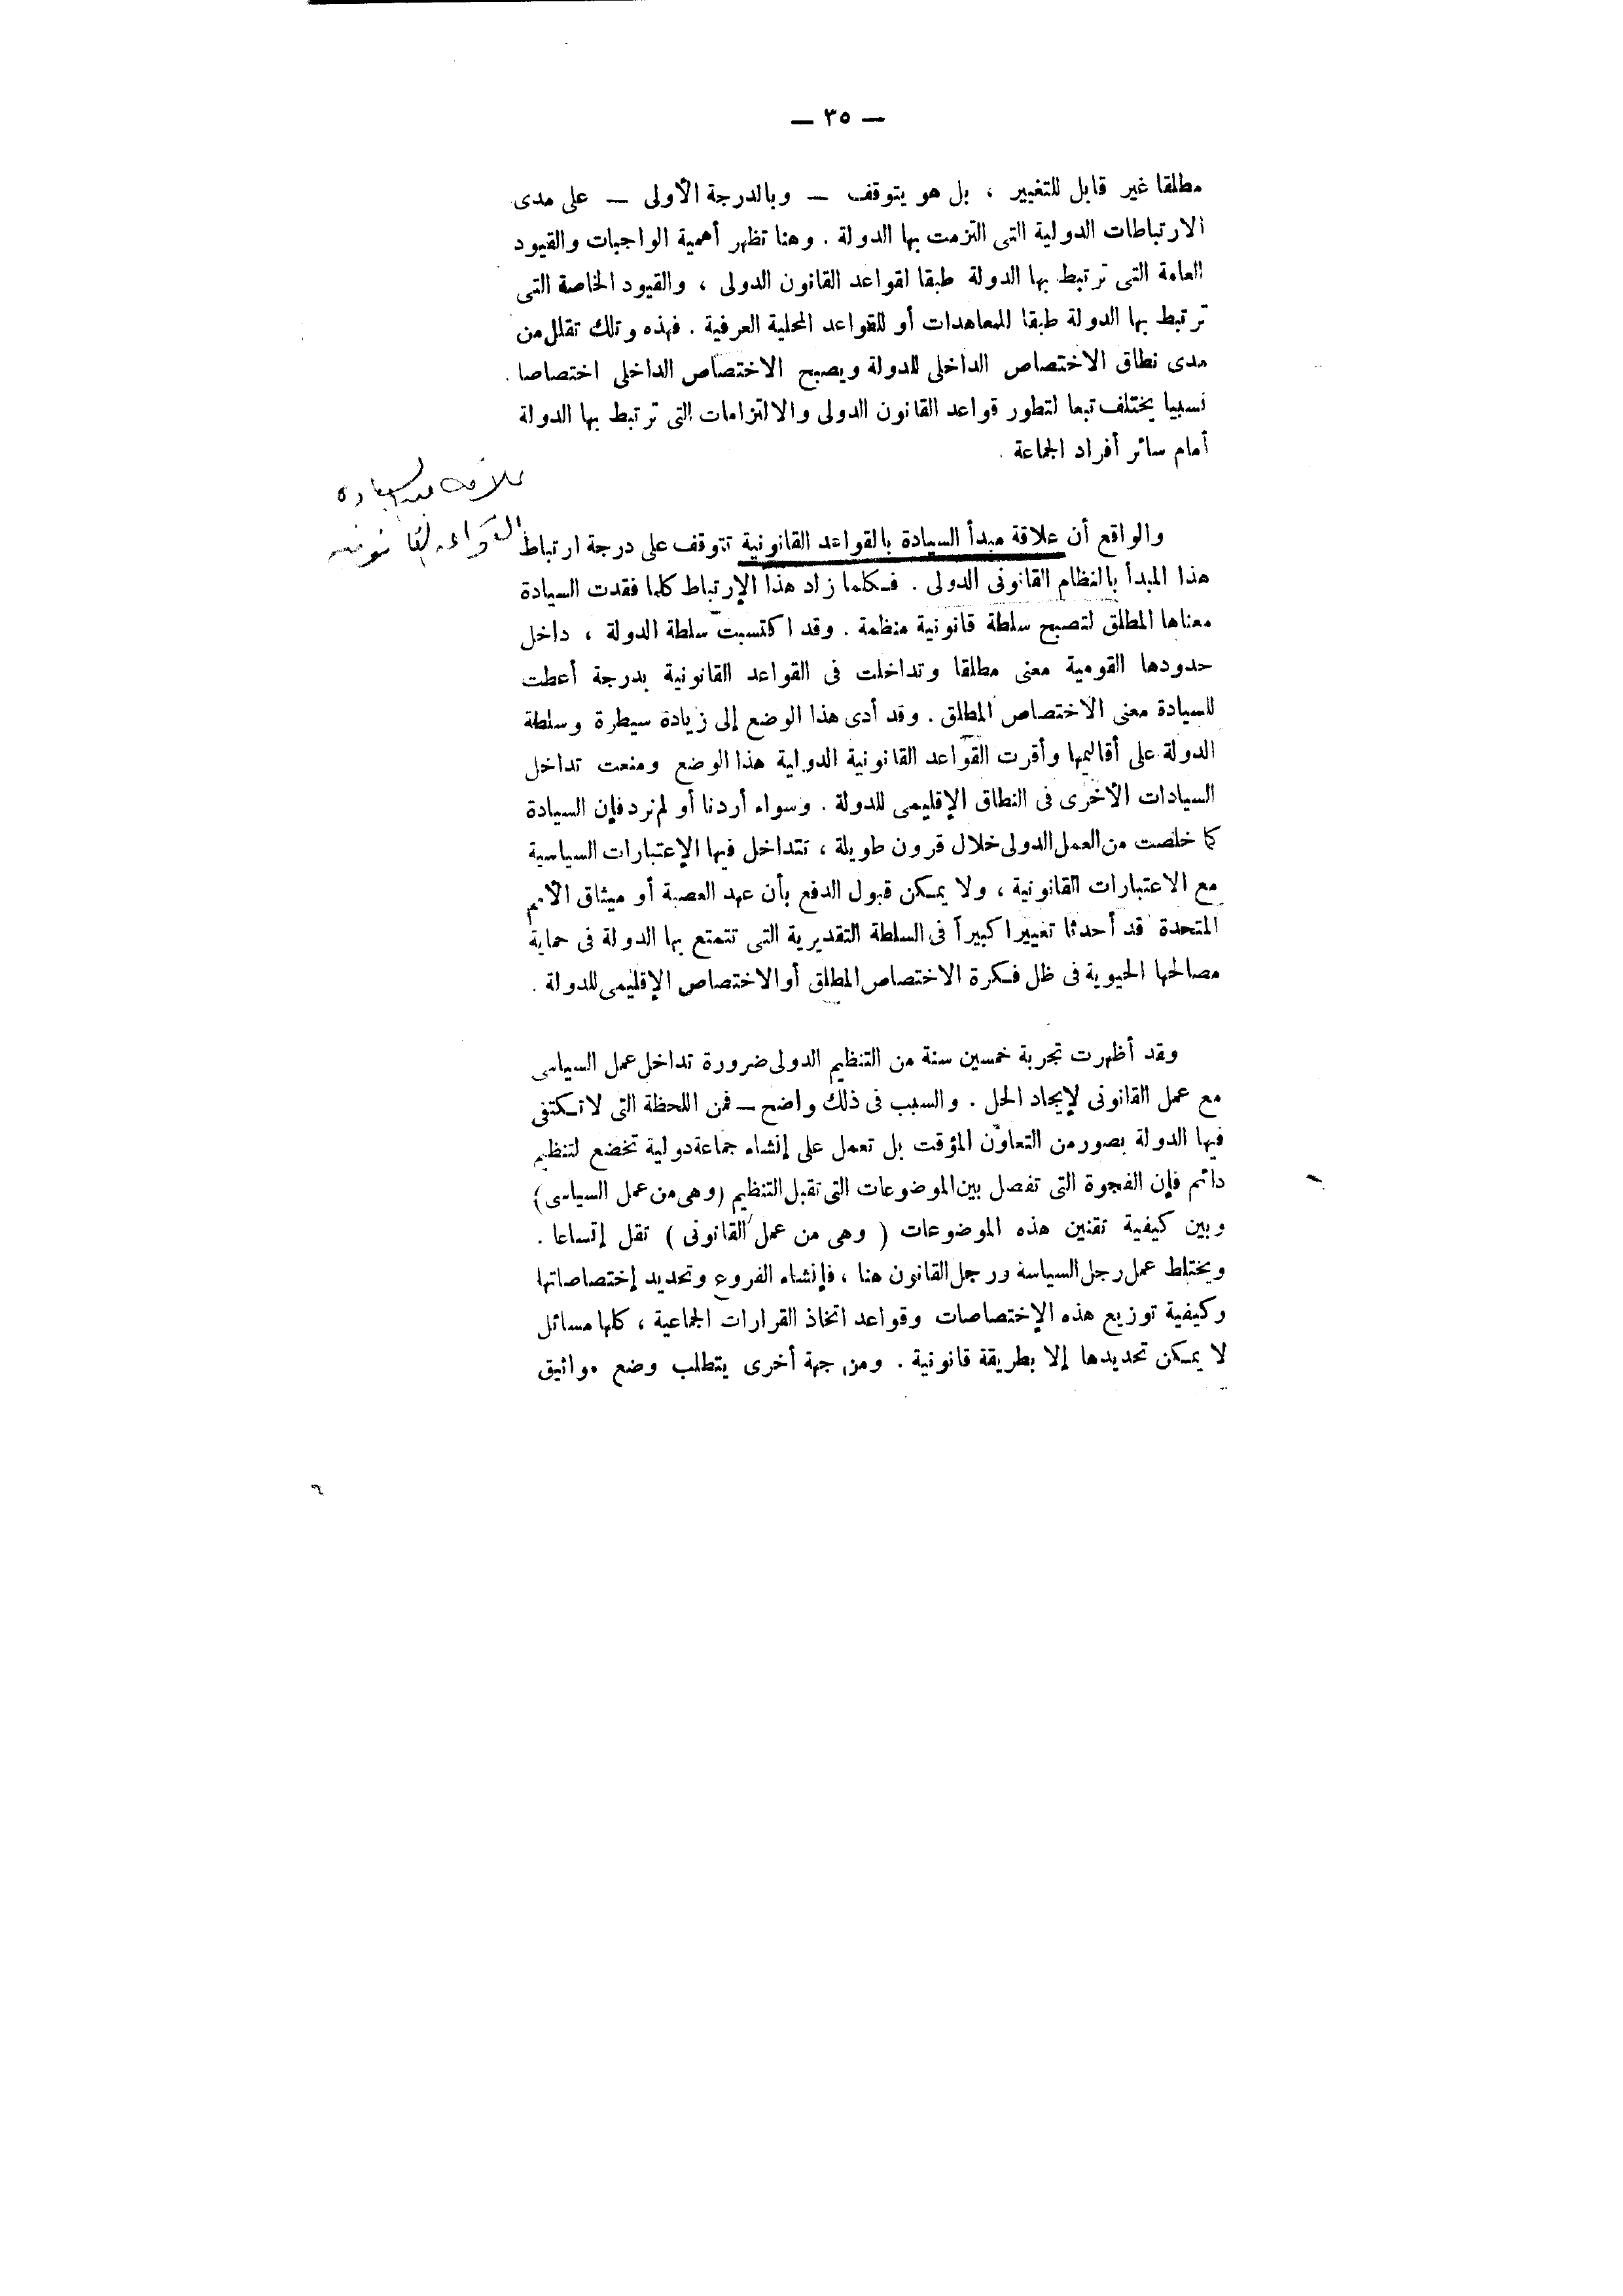 — ٣٥ —
مطلقا غير قابل للتغيير ، بل هو يتوقف — وبالدرجة الأولى — على مدى
الارتباطات الدولية التى التزمت بها الدولة . وهنا تظهر أهمية الواجبات والقيود
العامة التى ترتبط بها الدولة طبقا لقواعد القانون الدولى ، والقيود الخاصة التى
ترتبط بها الدولة طبقا للمعاهدات أو للقواعد المحلية العرفية . فهذه وتلك تقلل من
مدى نطاق الاختصاص الداخلى للدولة ويصبح الاختصاص الداخلى اختصاصا
نسبيا يختلف تبعا لتطور قواعد القانون الدولى والالتزامات التى ترتبط بها الدولة
أمام سائر أفراد الجماعة .
علاقة مبدأ السيادة
القواعد القانونية
والواقع أن علاقة مبدأ السيادة بالقواعد القانونية تتوقف على درجة ارتباط
هذا المبدأ بالنظام القانونى الدولى . فكلما زاد هذا الإرتباط كلما فقدت السيادة
معناها المطلق لتصبح سلطة قانونية منظمة . وقد اكتسبت سلطة الدولة ، داخل
حدودها القومية معنى مطلقا وتداخلت فى القواعد القانونية بدرجة أعطت
للسيادة معنى الاختصاص المطلق . وقد أدى هذا الوضع إلى زيادة سيطرة وسلطة
الدولة على أقاليمها وأقرت القواعد القانونية الدولية هذا الوضع ومنعت تداخل
السيادات الأخرى فى النطاق الإقليمى للدولة . وسواء أردنا أو لم نرد فإن السيادة
كما خلصت من العمل الدولى خلال قرون طويلة ، تتداخل فيها الإعتبارات السياسية
مع الاعتبارات القانونية ، ولا يمكن قبول الدفع بأن عهد العصبة أو ميثاق الأمم
المتحدة قد أحدثا تغييرا كبيراً فى السلطة التقديرية التى تتمتع بها الدولة فى حماية
مصالحها الحيوية فى ظل فكرة الاختصاص المطلق أو الاختصاص الإقليمى للدولة .
وقد أظهرت تجربة خمسين سنة من التنظيم الدولى ضرورة تداخل عمل السياسى
مع عمل القانونى لإيجاد الحل . والسبب فى ذلك واضح — فمن اللحظة التى لا تكتفى
فيها الدولة بصور من التعاون المؤقت بل تعمل على إنشاء جماعة دولية تخضع لتنظيم
دائم فإن الفجوة التى تفصل بين الموضوعات التى تقبل التنظيم (وهى من عمل السياسى)
وبين كيفية تقنين هذه الموضوعات ( وهى من عمل القانونى ) تقل إتساعا .
ويختلط عمل رجل السياسة ورجل القانون هنا ، فإنشاء الفروع وتحديد إختصاصاتها
وكيفية توزيع هذه الإختصاصات وقواعد اتخاذ القرارات الجماعية ، كلها مسائل
لا يمكن تحديدها إلا بطريقة قانونية . ومن جهة أخرى يتطلب وضع مواثيق